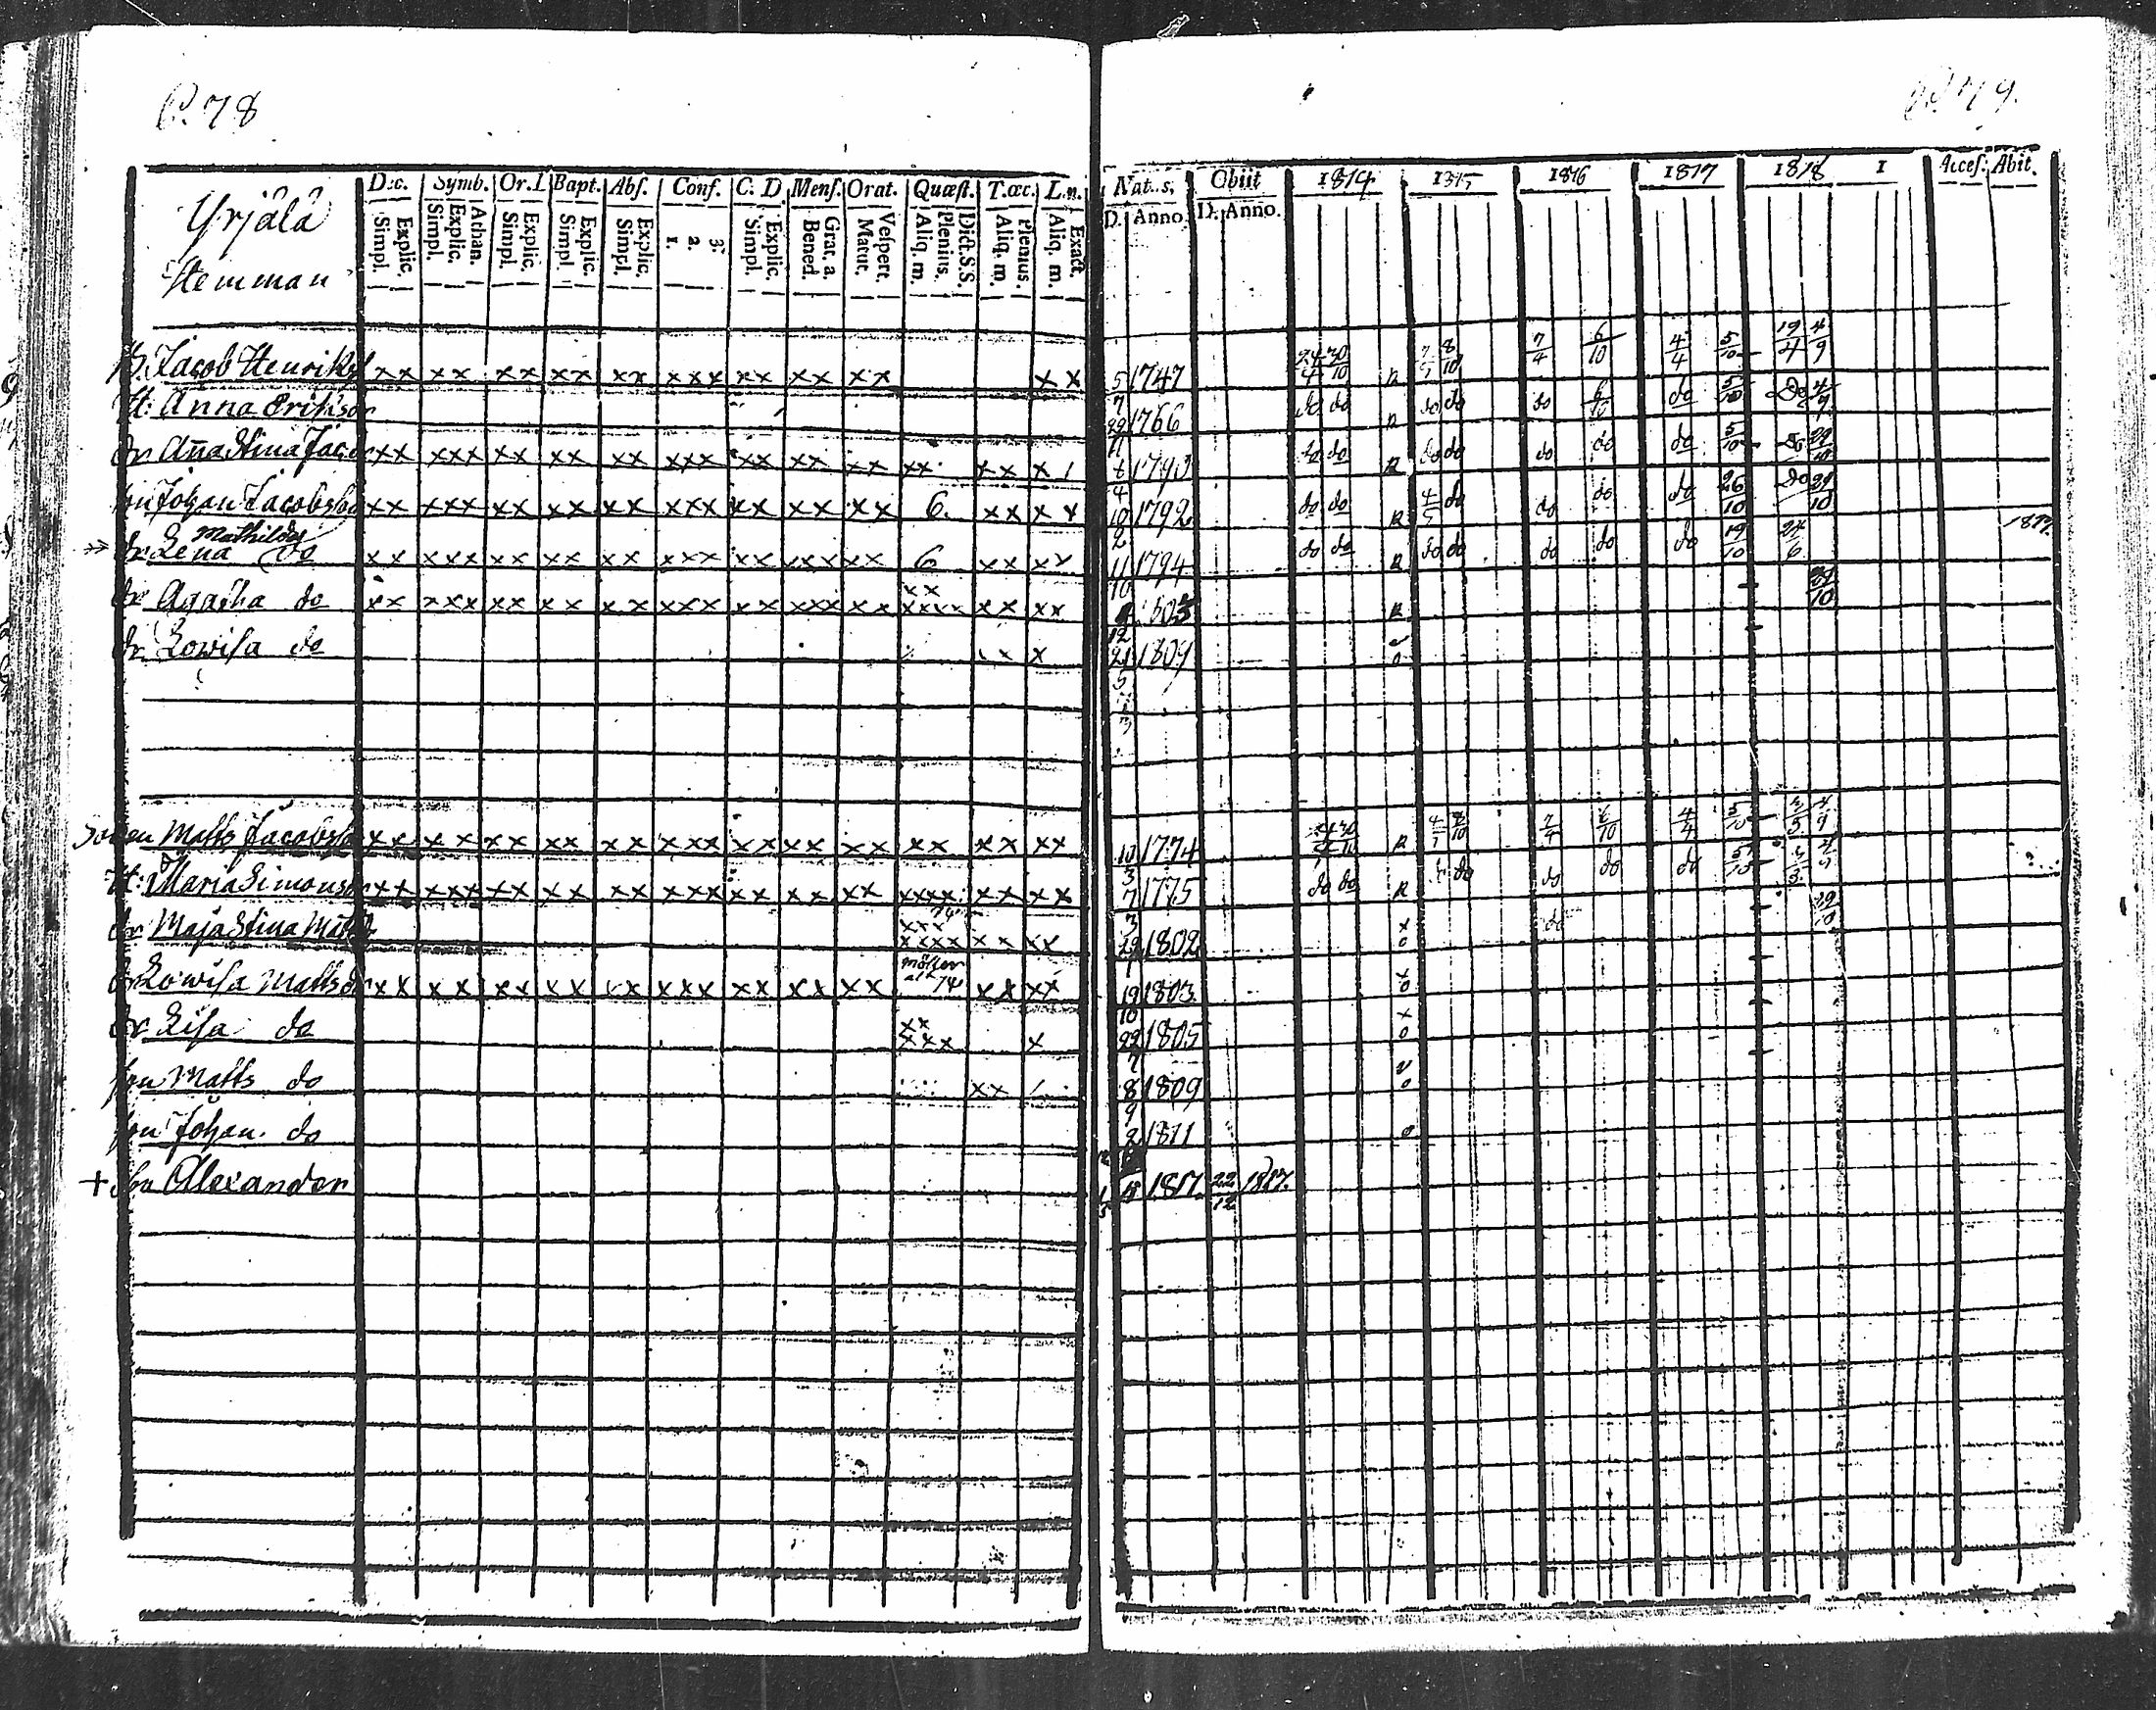 P. 78
79.
Yrjälä
Hemman
Dec. Symb. Or.D Bapt. Abſ. Conf. C. D Menſ. Orat. Quæſt. T.œc. L.n.
Simpl. Explic. Simpl. Explic. Athan. Simpl. Explic. Simpl. Explic. Simpl. Explic. 1. 2. 3. Simpl. Explic. Bened. Grat. a. Matut. Veſpert. Aliq. m. Plenius. Dict.S.S. Aliq. m. Plenius. Aliq. m. Exact.
Nat..s, Obiit 1814 1815 1816 1817 1818 1 Acceſ. Abit.
D. Anno. D. Anno.
B. Jacob Henriks xx xx xx xx xx xxx xx xx xx xx 5/7 1747 24/4 30/10 R 8/10 7/4 6/10 4/4 5/10 19/4 4/9
H: Anna Eriksdr 1766 do do R do do do 6/10 do 5/10 Do 4/9
dr Anna Stina Jac xx xxx xx xx xx xxx xx xx xx xx xx x 1793 do do R do do do do do 5/10 Do 29/10
ſon Johan Jacobsson xx xxx xx xx xx xxx xx xx xx 6. xx xx 1792 do do R do do do do 26/10 Do 29/10
Mathilda
dr Lena do xx xxx xx xx xx xxx xx xxx xx 6 xx xx 11/10 1794 do do R do do do do do 19/10 24/6 1819.
dr Agatha do xx xxx xx xx xx xxx xx xxx xx xx xxxx xx xx 1803 R 29/10
dr Lowiſa do xx x 21/5 1809
Matts Jacobsson xx xx xx xx xx xxx xx xx xx xx xx xx 10/3 1774 R 8/10 7/4 6/10 4/4 5/10 4/9
H: Maria Simonsdr xx xxx xx xx xx xxx xx xx xx xxxx xx xx 7/3 1775 do do R do do do do 5/10
dr Maja Stina Matts xxx xxxx xx xx 29/1 1802 x o do 29/10
dr Lowiſa Mattsdr xx xx xx xx xx xxx xx xx xx 74 xx xx 19/10 1803 x o
dr Liſa do xx xxx x 22/7 1805 x o
ſon Matts do xx 8/9 1809 v o
ſon Johan do 2 1811 o
+ ſon Alexander 18 1817. 22/12 1817.